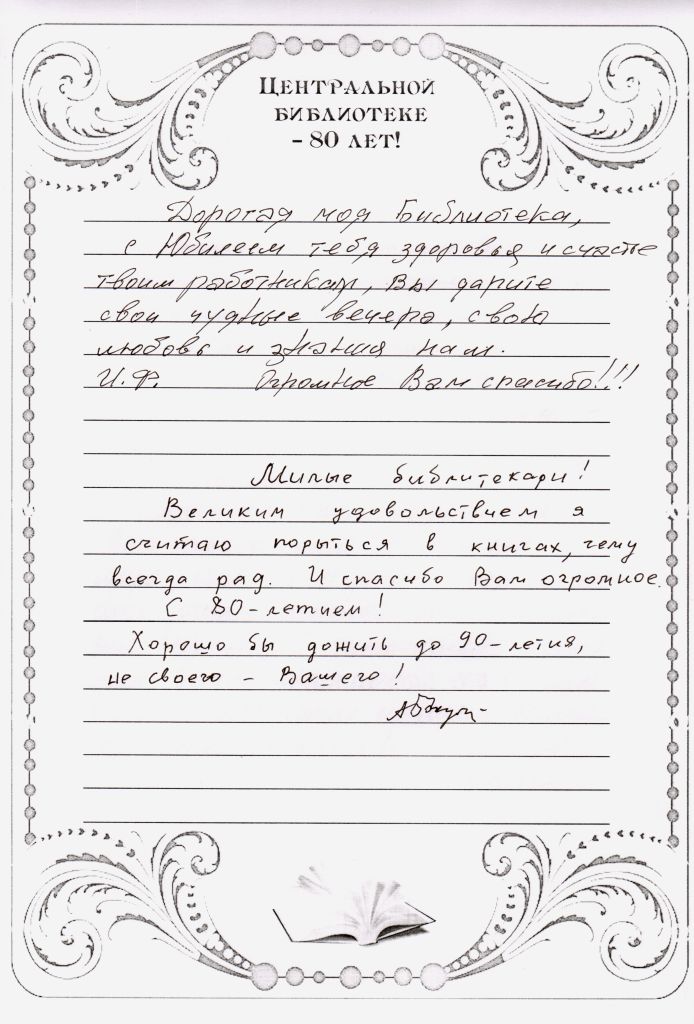 ЦЕНТРАЛЬНОЙ
БИБЛИОТЕКЕ
– 80 ЛЕТ!
Дорогая моя Библиотека,
с Юбилеем тебя здоровья и счастье
твоим работникам, Вы дарите
свои чудные вечера, свою
любовь и знания нам.
И.Ф. Огромное Вам спасибо!!!
Милые библитекари!
Великим удовольствием я
считаю порыться в книгах, чему
всегда рад. И спасибо Вам огромное.
С 80-летием!
Хорошо бы дожить до 90-летия,
не своего – Вашего!